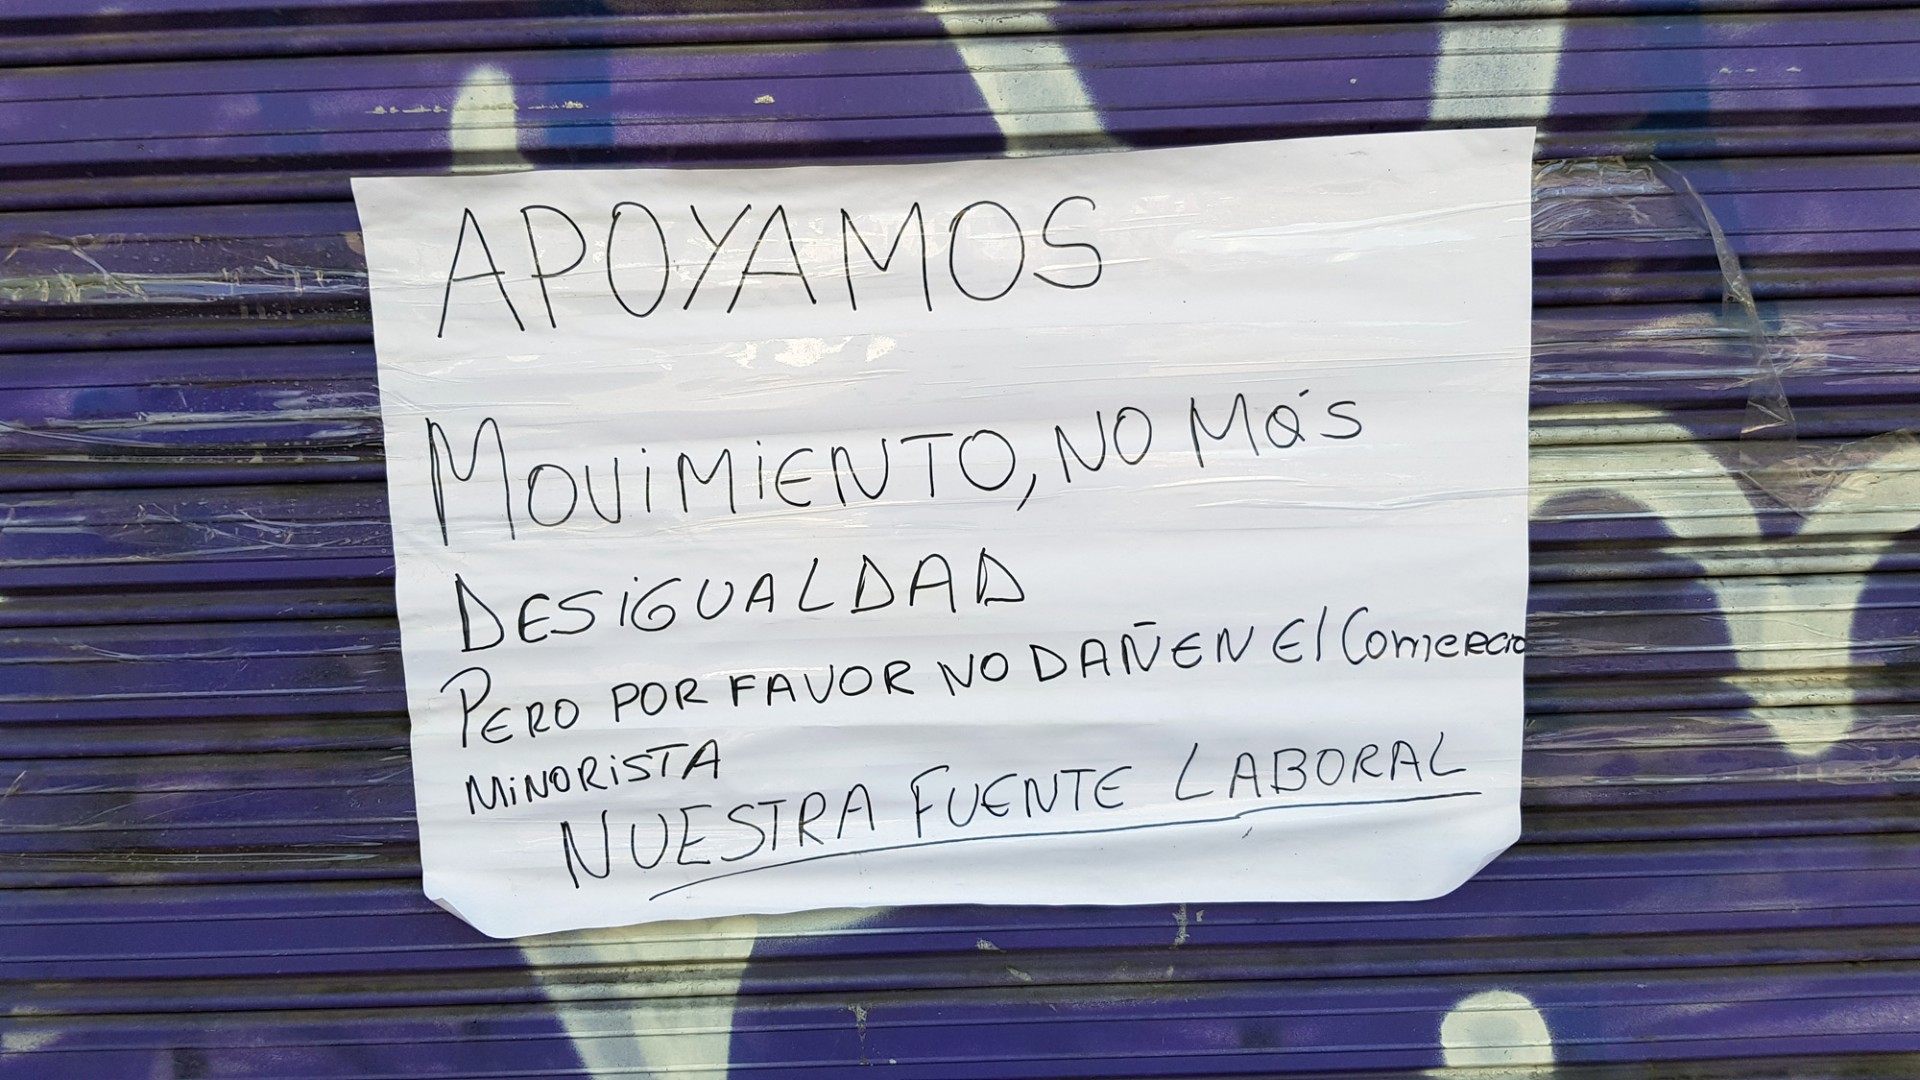 APOYAMOS
MOVIMIENTO, NO MÁS
DESIGUALDAD
PERO POR FAVOR NO DAÑEN El Comercio
MINORISTA
NUESTRA FUENTE LABORAL